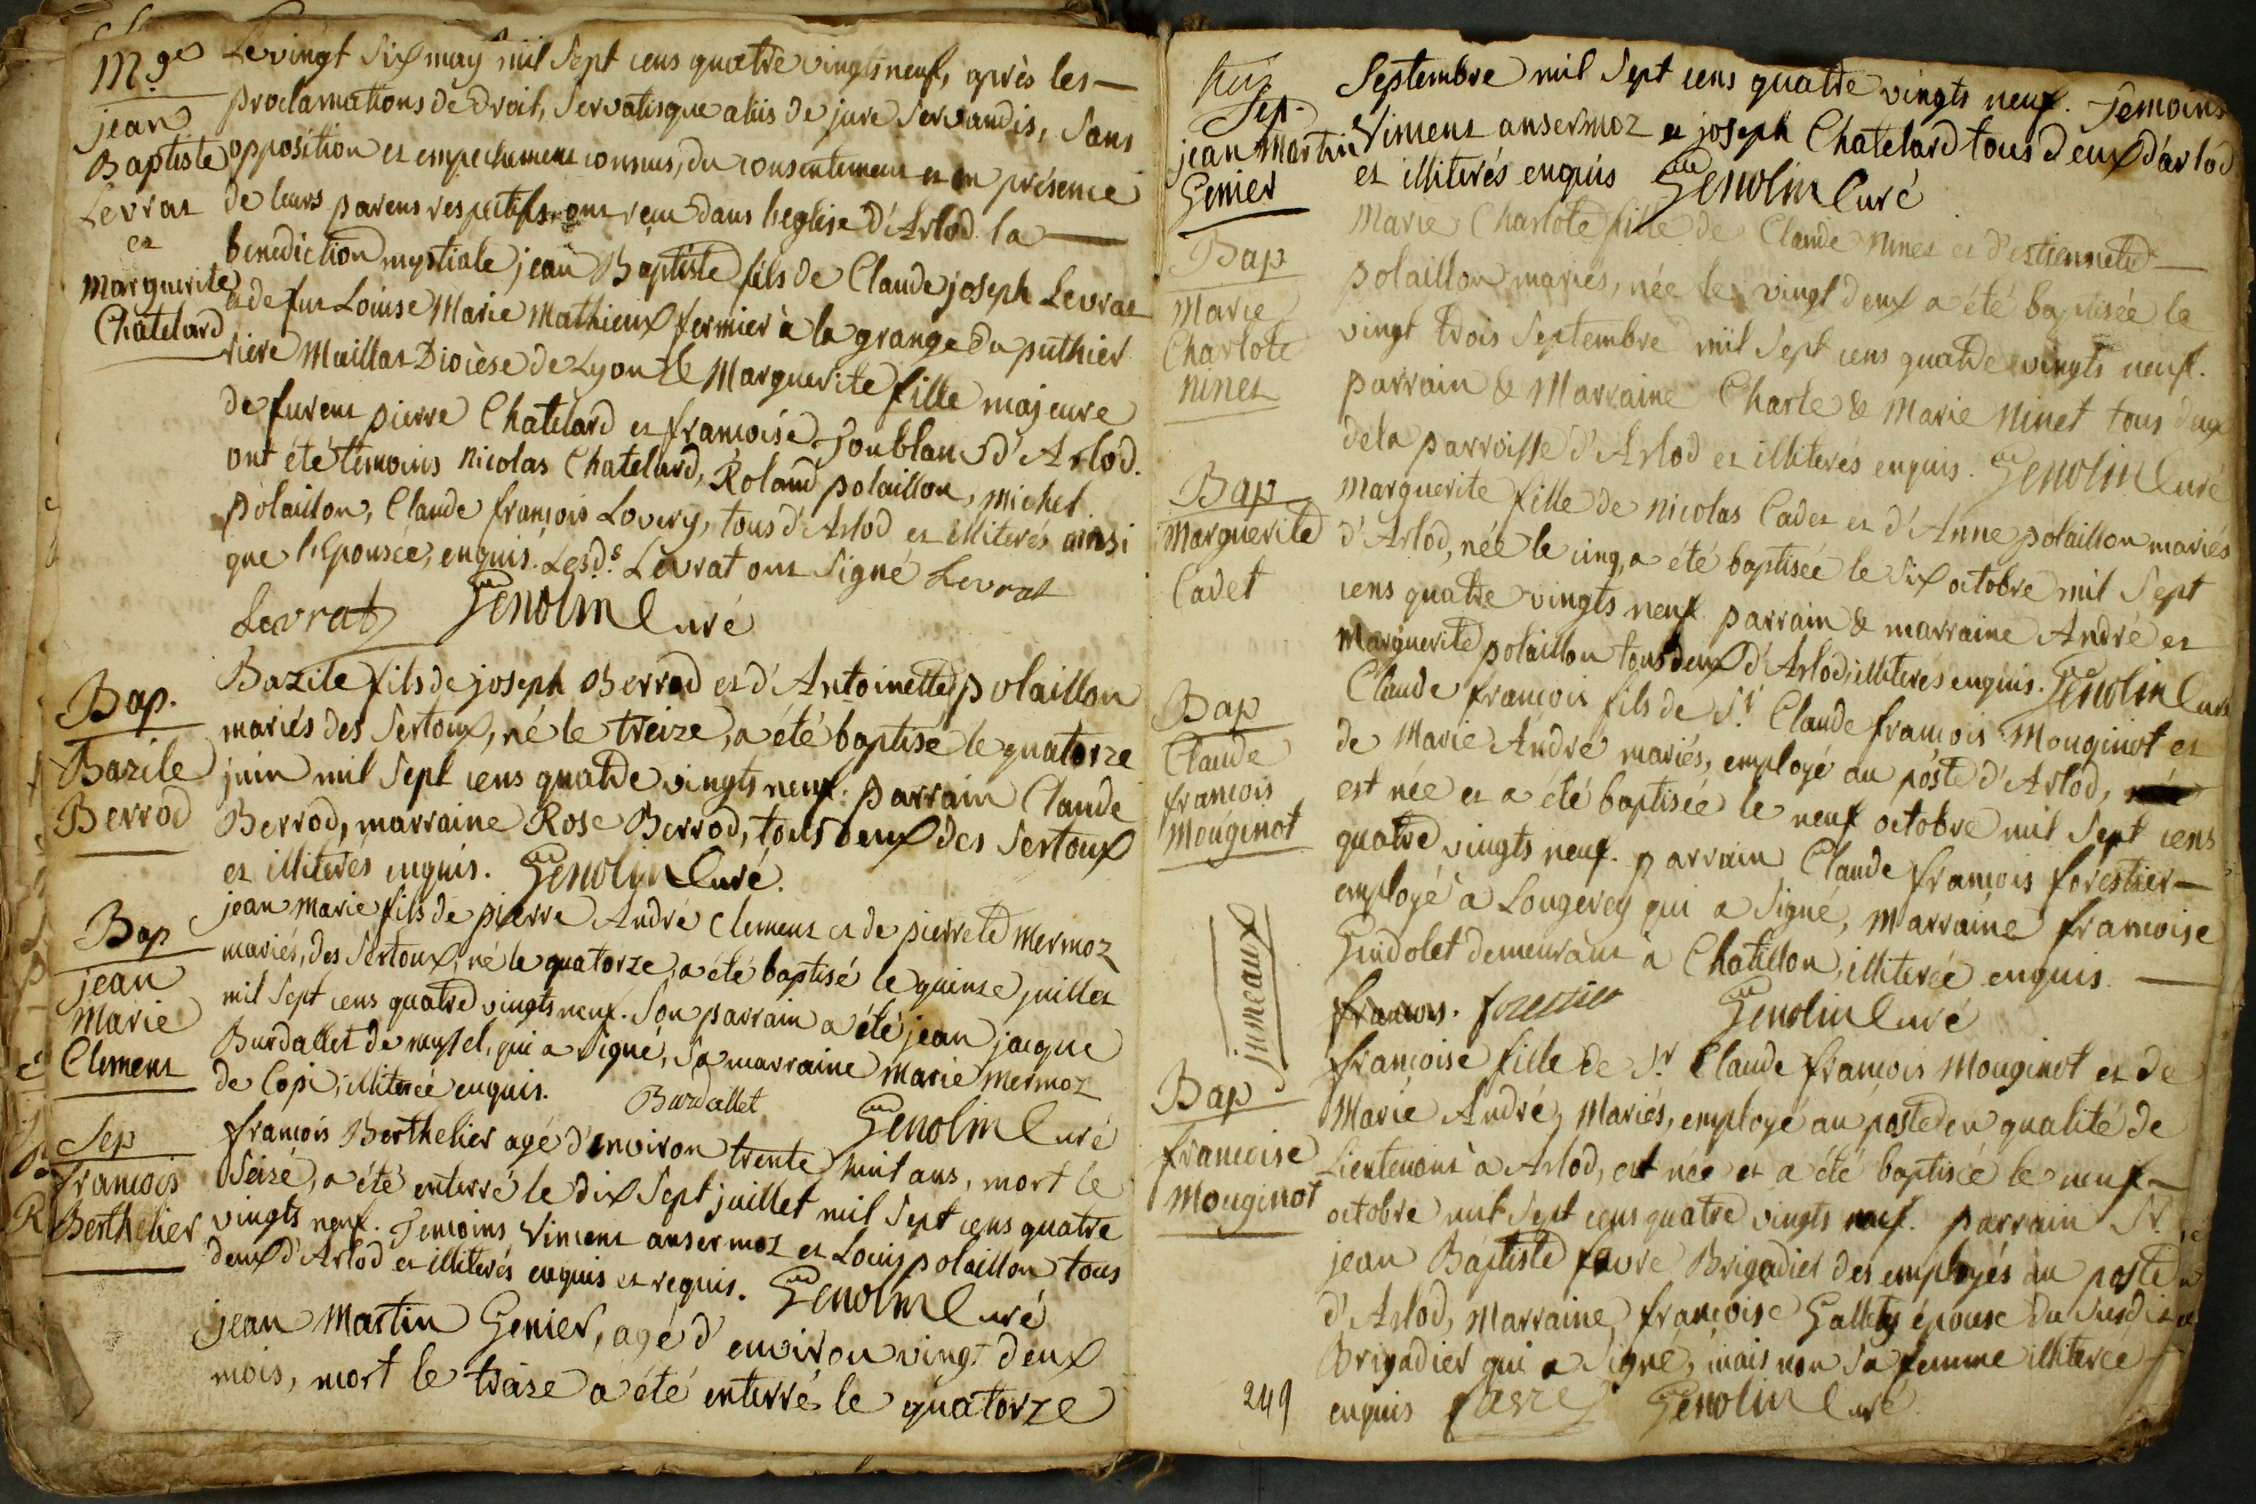 M.ge
jean
Baptiste
Levrat
et
Marguerite
Chatelard
Le vingt six may mil sept cens quatre vingts neuf, après les
proclamations de Droit, servatisque aliis de jure servandis, sans
opposition et empechement connus, du consentement et en présence
de leurs parens respectifs ont reçu dans l'eglise d'Arlod la
benediction nuptiale jean Baptiste fils de Claude joseph Levrat
et de fut Louise Marie Mathieux fermier à la grange du puthier
riere Maillat Diocèse de Lyon & Marguerite fille majeure
de furent pierre Chatelard et françoise Joublan d'Arlod.
ont été témoins Nicolas Chatelard, Roland polaillon, Michel
polaillon, Claude françois Lovery, tous d'Arlod et illiterés ainsi
que l'Epousée, enquis. Lesd.s Levrat ont signé Levrat
Levrat Genolin Curé
Bap.
Bazile
Berrod
Bazile fils de joseph Berrod et d'Antoinette polaillon
mariés des Sertoux, né le treize, a été baptisé le quatorze
juin mil sept cens quatre vingts neuf. parrain Claude
Berrod, marraine Rose Berrod, tous deux des Sertoux
et illiterés enquis. Genolin Curé.
Bap
jean
Marie
Clement
jean marie fils de pierre André Clement et de pierrete Mermoz
mariés, des Sertoux, né le quatorze, a été baptisé le quinze juillet
mil sept cens quatre vingts neuf. Son parrain a été jean jacque
Burdallet de seyssel, qui a signé, sa marraine Marie Mermoz
de Copi, illiterée enquis. Burdallet Genolin Curé
Sep
francois
Berthelier
françois Berthelier agé d'environ trente huit ans, mort le
seize, a été enterré le dix sept juillet mil sept cens quatre
vingts neuf. Temoins Vincent ansermoz et Louis polaillon tous
deux d'Arlod et illiterés enquis et requis. Genolin Curé
jean Martin Genier, agé d'environ vingt deux
mois, mort le treize a été enterré le quatorze
Sep.
jean Martin
Genier
Septembre mil sept cens quatre vingts neuf. Temoins
Vincent ansermoz et joseph Chatelard tous deux d'arlod
et illiterés enquis Genolin Curé
Bap
Marie
Charlote
Ninet
Marie Charlote fille de Claude Ninet et d'estiennete
polaillon mariés, née le vingt deux a été baptisée le
vingt trois Septembre mil sept cens quatre vingts neuf.
parrain & Marraine Charle & Marie Ninet tous deux
de la parroisse d'Arlod et illiterés enquis. Genolin Curé
Bap
Marguerite
Cadet
Marguerite fille de Nicolas Cadet et d'Anne polaillon mariés
d'Arlod, née le cinq, a été baptisée le six octobre mil sept
cens quatre vingts neuf parrain & marraine André et
Marguerite polaillon tous deux d'Arlod, illiterés enquis. Genolin Curé
Bap
Claude
francois
Mouginot
Claude françois fils de S.r Claude françois Mouginot et
de Marie André mariés, employé au poste d'Arlod,
est née et a été baptisée le neuf octobre mil sept cens
quatre vingts neuf. parrain Claude françois forestier
employé à Longerey qui a signé, Marraine francoise
Gindolet demeurant à Chatillon, illiterée enquis.
francois. forestier Genolin Curé
jumeaux
Bap
francoise
Mouginot
françoise fille de S.r Claude françois Mouginot et de
Marie André, Mariés, employé au poste en qualité de
Lieutenant à Arlod, est née et a été baptisée le neuf
octobre mil sept cens quatre vingts neuf. parrain S.r
jean Baptiste favre Brigadier des employés au poste
d'Arlod, Marraine françoise Gallety épouse du susdit
Brigadier qui a signé, mais non sa femme illiterée
enquis favre Genolin Curé
249